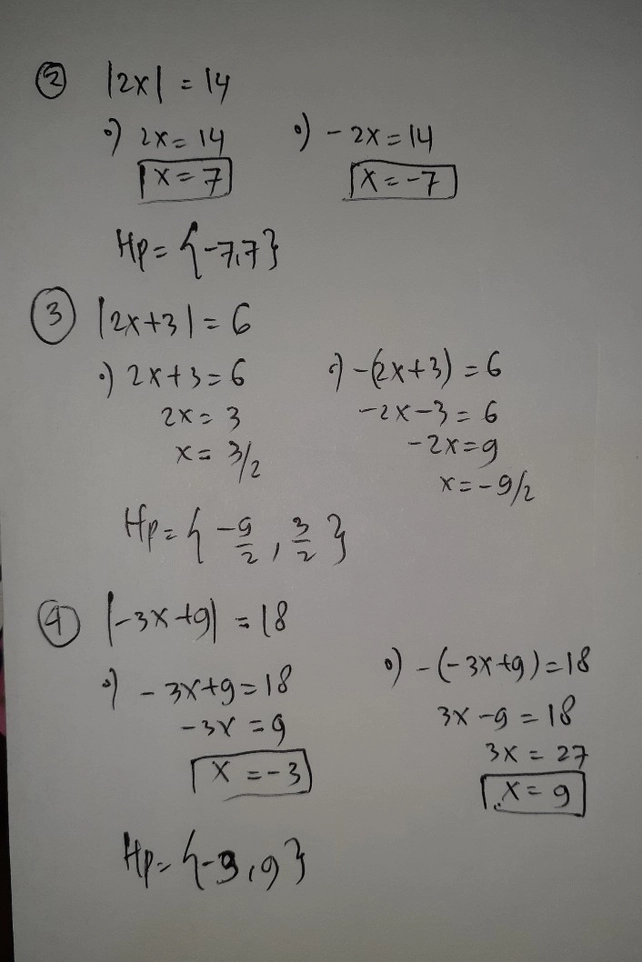 ② |2x| = 14
•) 2x = 14 •) - 2x = 14
x = 7 x = -7
Hp = {-7,7}
③ |2x+3| = 6
•) 2x+3 = 6 •) -(2x+3) = 6
2x = 3 -2x-3 = 6
x = 3/2 -2x = 9
x = -9/2
Hp = { -9/2 , 3/2 }
④ |-3x+9| = 18
•) - 3x+9 = 18 •) -(-3x+9) = 18
-3x = 9 3x - 9 = 18
x = -3 3x = 27
x = 9
Hp = {-3,9}